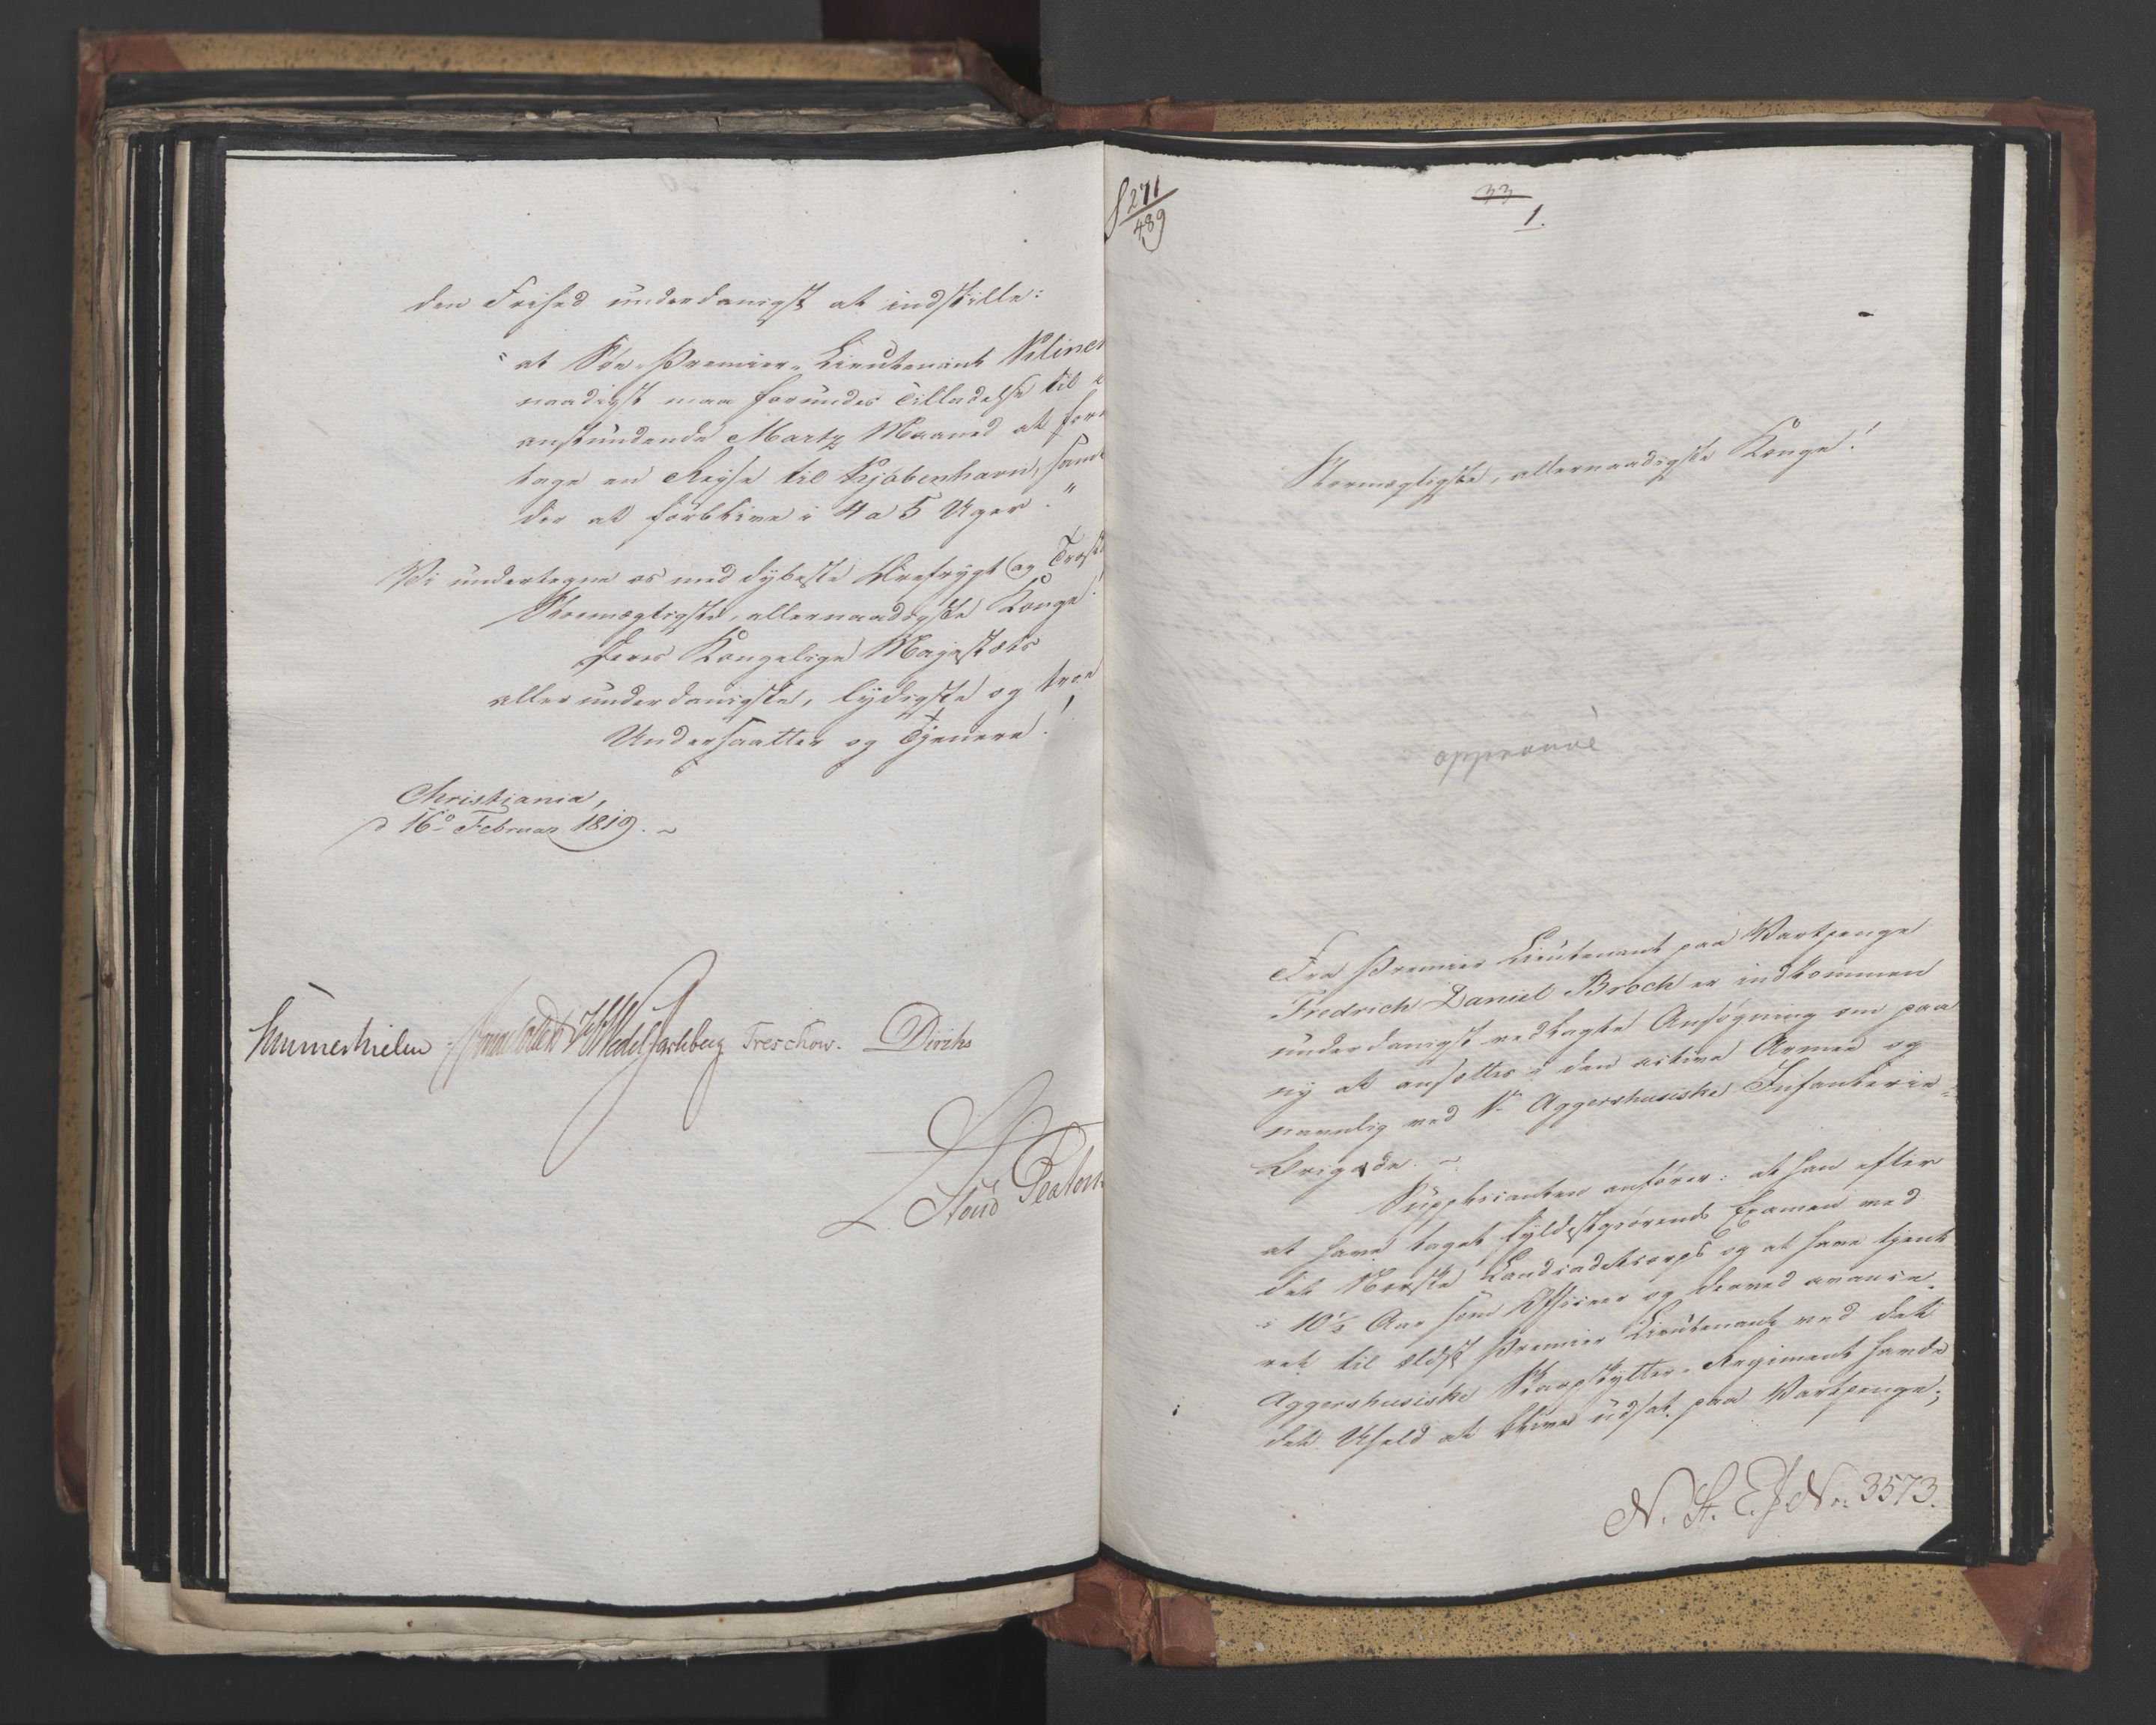 den Frihed underdanigst at indstille:
"at Søe-Premier-Lieutenant Kliner
naadigst maa forundes Tilladelse til i
anstundende Martz Maaned at fore
tage en Reise til Kjøbenhavn, samt
der at forblive i 4 a 5 Uger."
Vi undertegne os med dybeste Ærefrygt og Troska
Stormægtigste, allernaadigste Konge!
Deres Kongelige Majestæts
allerunderdanigste, lydigste og troe
Undersaatter og Tjenere!
Christiania,
d 16d Februar 1819.
Hammerhielm Sommerfeldt Wedel Jarlsberg Treschow. Diriks
L. Stoud Platou
S 271
489
33
1.
Stormægtigste, allernaadigste Konge!
approuvé
Fra Premier Lieutenant paa Vartpenge
Fredrich Daniel Broch er indkommen
underdanigst vedlagte Ansøgning om paa
ny at ansættes i den active Armee og
navnlig ved Aggershusiske Infanterie-
Brigade.
Supplicanten anfører: at han efter
at have taget fyldestgiørende Examen ved
det Norske Landcadetcorps og at have tjent
i 10½ Aar som Officier og derved avance-
ret til ældst Premier Lieutenant ved det
Aggershusiske Skarpskytter-Regiment havde
det Uheld at blive udsat paa Vartpenge;
N. St. E. J No. 3573.